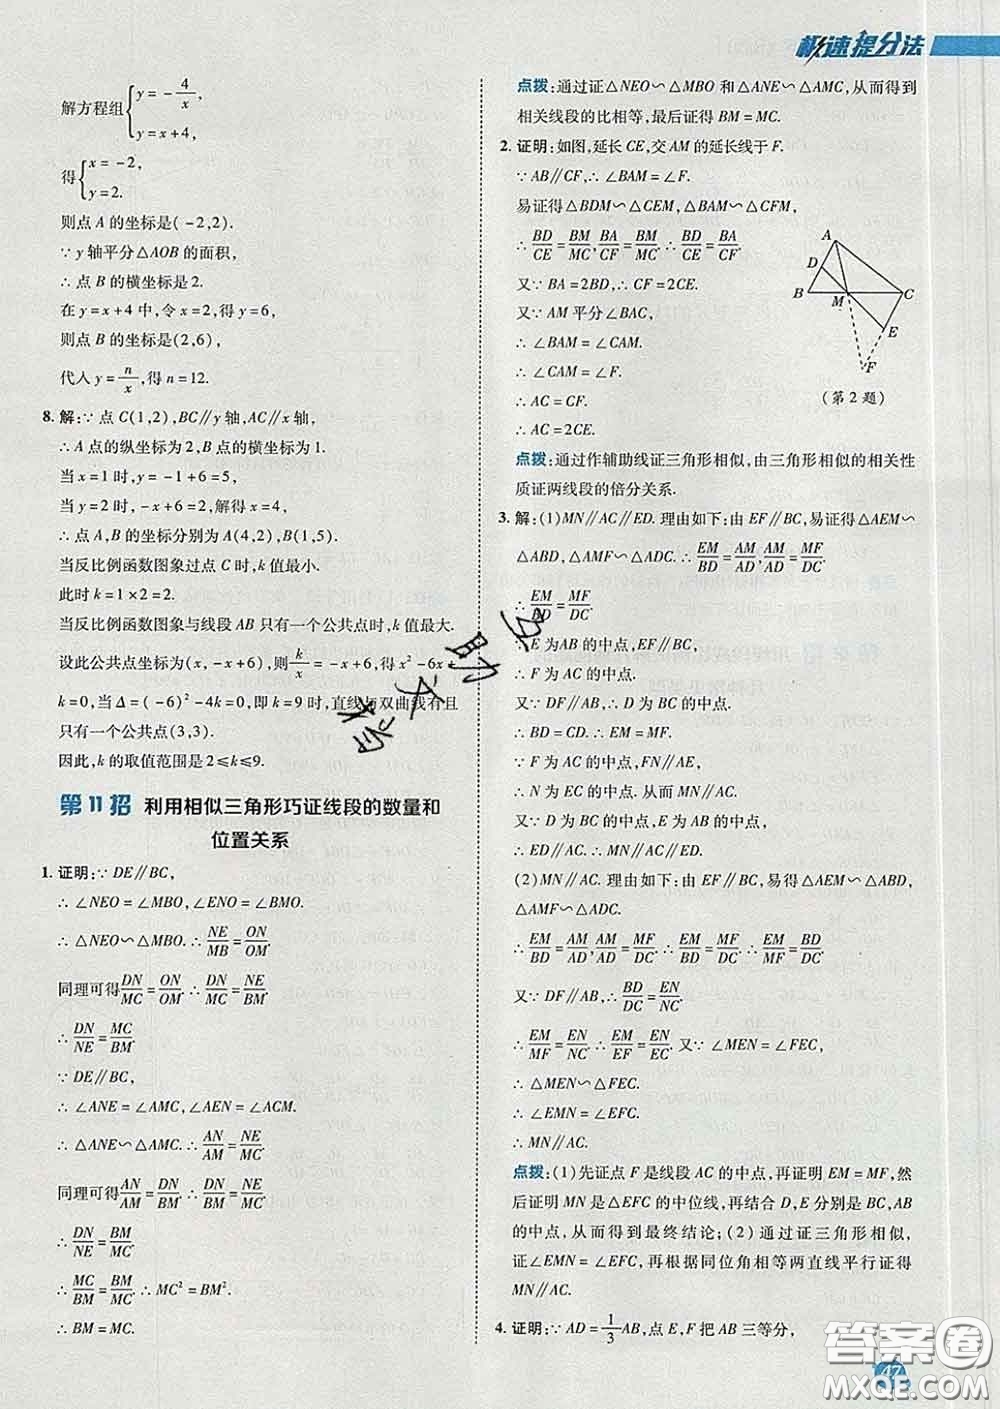 极速提分法
解方程组{y=-4/x,
y=x+4,
得{x=-2,
y=2.
则点A的坐标是(-2,2).
∵y轴平分△AOB的面积,
∴点B的横坐标是2.
在y=x+4中,令x=2,得y=6,
则点B的坐标是(2,6),
代入y=n/x,得n=12.
8. 解:∵点C(1,2),BC∥y轴,AC∥x轴,
∴A点的纵坐标为2,B点的横坐标为1.
当x=1时,y=-1+6=5,
当y=2时,-x+6=2,解得x=4,
∴点A,B的坐标分别为A(4,2),B(1,5).
当反比例函数图象过点C时,k值最小.
此时k=1×2=2.
当反比例函数图象与线段AB只有一个公共点时,k值最大.
设此公共点坐标为(x,-x+6),则k/x=-x+6,得x²-6x+
k=0,当Δ=(-6)²-4k=0,即k=9时,直线与双曲线有且
只有一个公共点(3,3).
因此,k的取值范围是2≤k≤9.
第11招 利用相似三角形巧证线段的数量和
位置关系
1. 证明:∵DE∥BC,
∴∠NEO=∠MBO,∠ENO=∠BMO.
∴△NEO∽△MBO.∴NE/MB=ON/OM.
同理可得DN/MC=ON/OM.∴DN/MC=NE/BM.
∴DN/NE=MC/BM.
∵DE∥BC,
∴∠ANE=∠AMC,∠AEN=∠ACM.
∴△ANE∽△AMC.∴AN/AM=NE/MC.
同理可得AN/AM=DN/BM.∴DN/BM=NE/MC.
∴DN/NE=BM/MC.
∴MC/BM=BM/MC.∴MC²=BM².
∴BM=MC.
点拨:通过证△NEO∽△MBO和△ANE∽△AMC,从而得到
相关线段的比相等,最后证得BM=MC.
2. 证明:如图,延长CE,交AM的延长线于F.
∵AB∥CF,∴∠BAM=∠F.
易证得△BDM∽△CEM,△BAM∽△CFM,
∴BD/CE=BM/MC,BA/CF=BM/MC.∴BD/CE=BA/CF.
又∵BA=2BD,∴CF=2CE.
又∵AM平分∠BAC,
∴∠BAM=∠CAM.
∴∠CAM=∠F.
∴AC=CF.
∴AC=2CE.
A
D
B
M
C
E
F
(第2题)
点拨:通过作辅助线证三角形相似,由三角形相似的相关性
质证两线段的倍分关系.
3. 解:(1)MN∥AC∥ED.理由如下:由EF∥BC,易证得△AEM∽
△ABD,△AMF∽△ADC.∴EM/BD=AM/AD,AM/AD=MF/DC.
∴EM/BD=MF/DC.
∵E为AB的中点,EF∥BC,
∴F为AC的中点.
又∵DF∥AB,∴D为BC的中点,
∴BD=CD.∴EM=MF.
∵F为AC的中点,FN∥AE,
∴N为EC的中点.从而MN∥AC.
又∵D为BC的中点,E为AB的中点,
∴ED∥AC.∴MN∥AC∥ED.
(2)MN∥AC.理由如下:由EF∥BC,易得△AEM∽△ABD,
△AMF∽△ADC.
∴EM/BD=AM/AD,AM/AD=MF/DC.∴EM/BD=MF/DC.∴EM/MF=BD/DC.
又∵DF∥AB,∴BD/DC=EN/NC.
∴EM/MF=EN/NC.∴EM/EF=EN/EC.又∵∠MEN=∠FEC,
∴△MEN∽△FEC.
∴∠EMN=∠EFC.
∴MN∥AC.
点拨:(1)先证点F是线段AC的中点,再证明EM=MF,然
后证明MN是△EFC的中位线,再结合D,E分别是BC,AB
的中点,从而得到最终结论;(2)通过证三角形相似,
证∠EMN=∠EFC,再根据同位角相等两直线平行证得
MN∥AC.
4. 证明:∵AD=1/3AB,点E,F把AB三等分,
47
答案圈
MXQE.COM